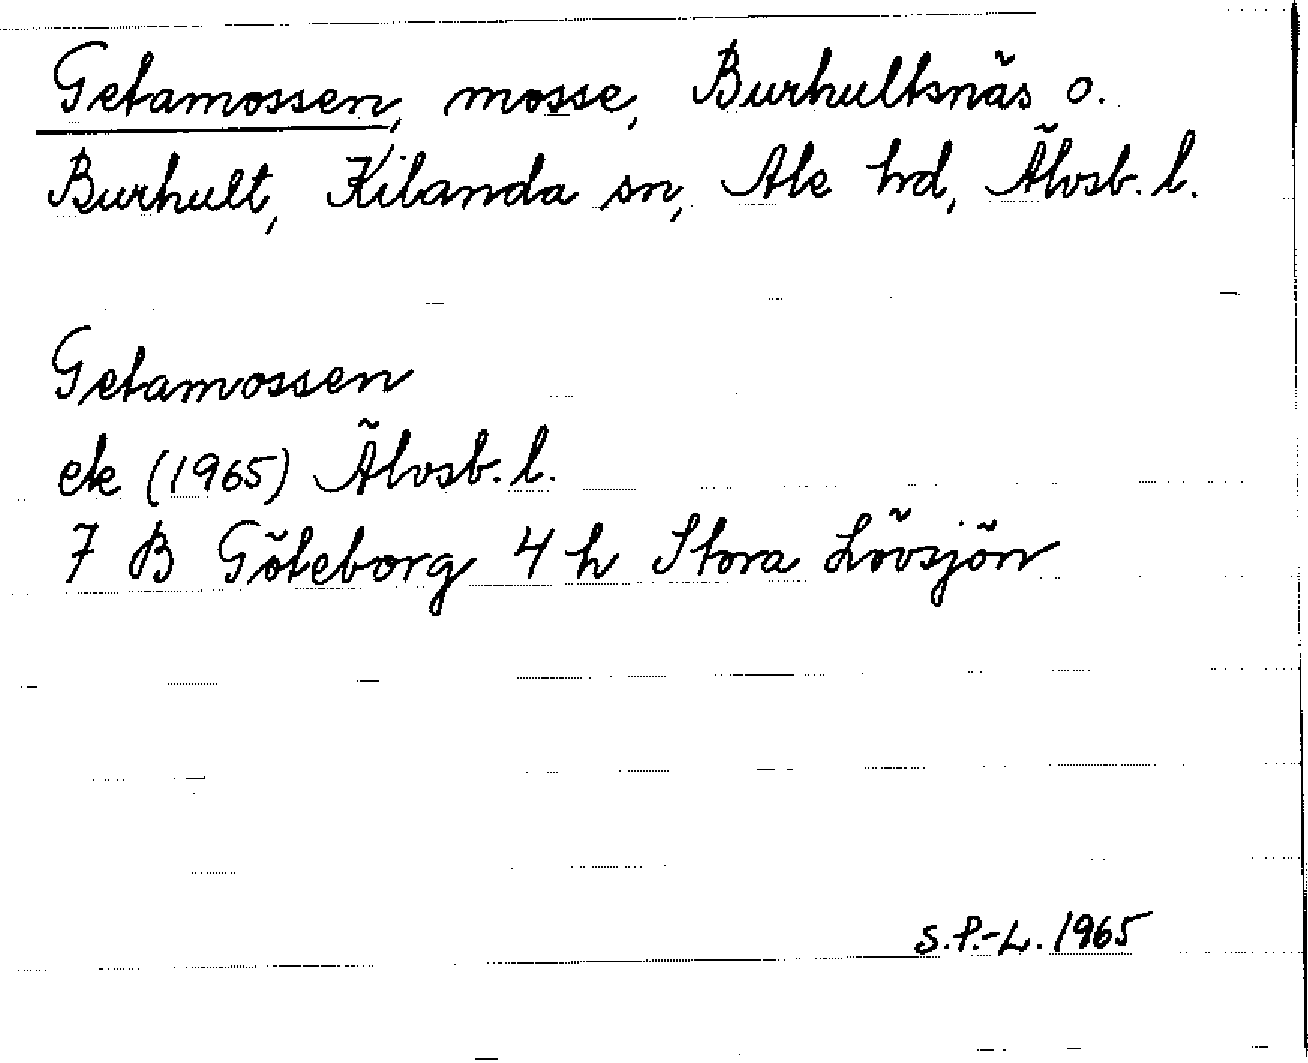 Getamossen, mosse, Burhultsnäs o.
Burhult, Kilanda sn, Ale hd, Älvsb. l.
Getamossen
ek (1965) Älvsb. l.
7 B Göteborg 4 h Stora Lövsjön
S.P.-L. 1965